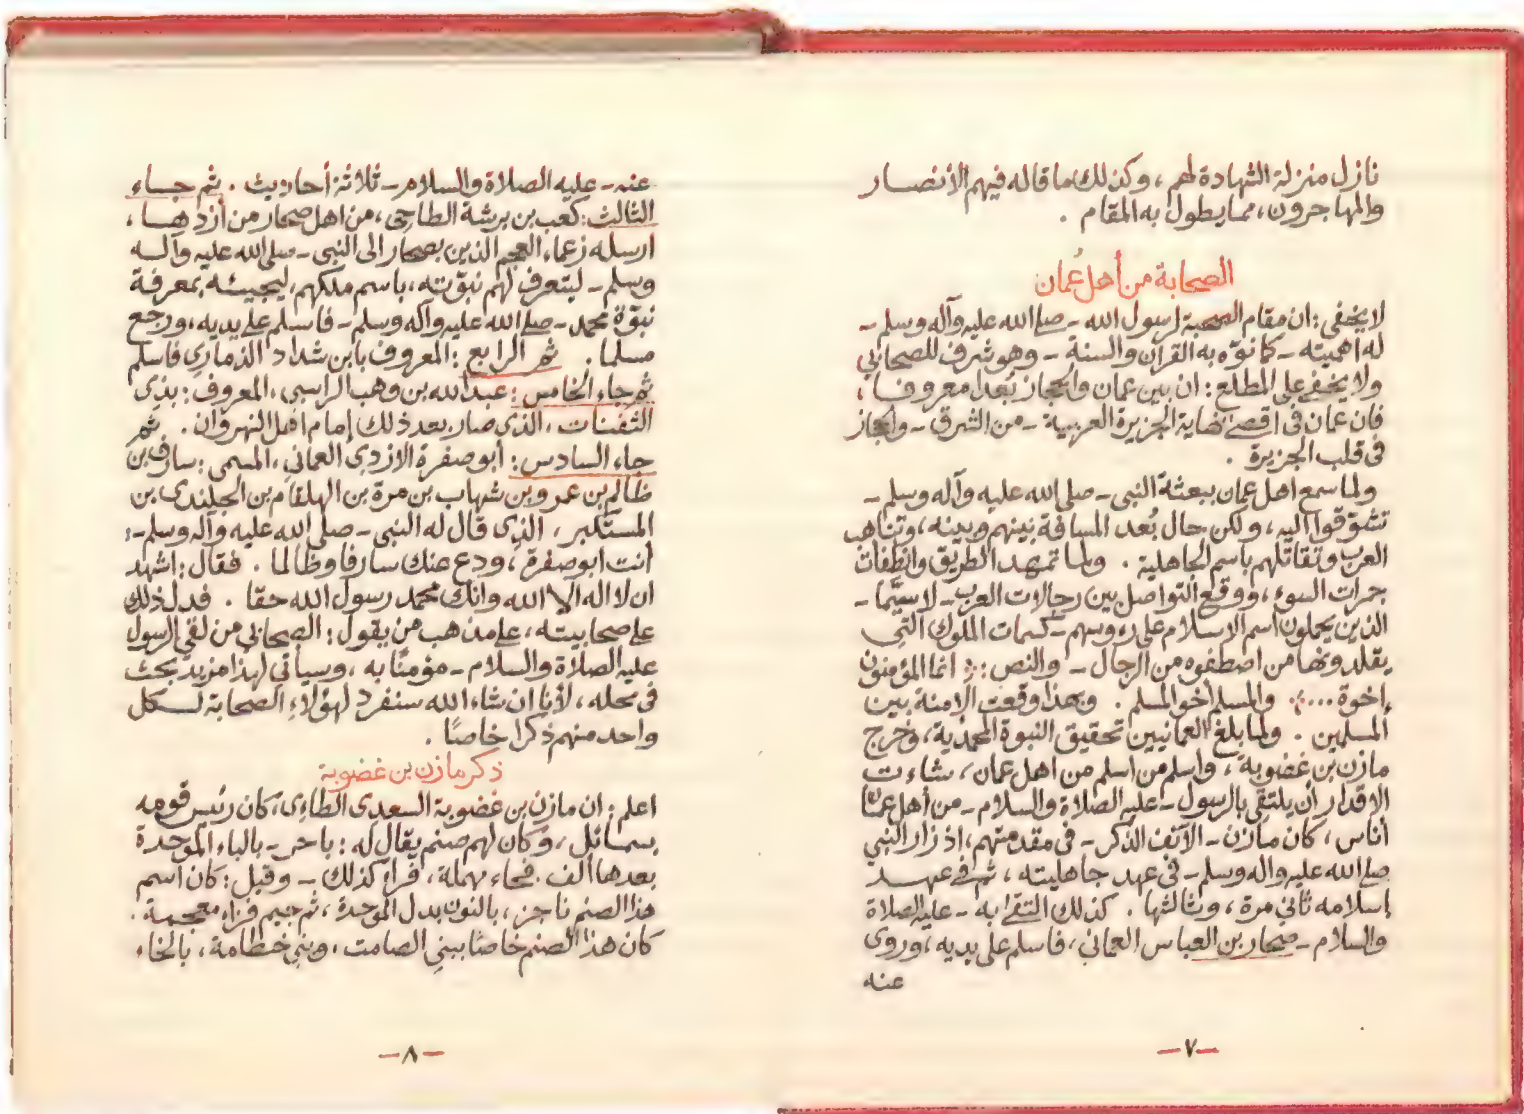 نازل منزلة الشهادة لهم ، وكذلك ما قاله فيهم الأنصار
والمهاجرون ، مما يطول به المقام .
الصحابة من أهل عُمان
لا يخفى : ان مقام الصحبة لرسول الله - صلى الله عليه وآله وسلم -
له اهميته - كما نوّه به القرآن والسنة - وهو شرف للصحابي
ولا يخفى على المطلع : ان بين عمان والحجاز بُعدا معروفا ،
فان عمان فى اقصى نهاية الجزيرة العربية - من الشرق - والحجاز
فى قلب الجزيرة .
ولما سمع اهل عمان ببعثة النبى - صلى الله عليه وآله وسلم -
تشوّقوا اليه ، ولكن حال بُعد المسافة بينهم وبينه ، وتناهب
العرب وتقاتلهم باسم الجاهلية . ولما تمهد الطريق وانطفأت
جمرات السوء ، ووقع التواصل بين رجالات العرب - لا سيّما -
الذين يحملون اسم الإسلام على رءوسهم - كسمات الملوك التي
يقلدونها من اصطفوه من الرجال - والنص : انما المؤمنون
إخوة .... والمسلم أخو المسلم . وبهذا وقعت الامنة بين
المسلمين . ولما بلغ العمانيين تحقيق النبوة المحمدية ، وخرج
مازن بن غضوبة ، واسلم من اسلم من اهل عمان ، شاءت
الاقدار أن يلتقي بالرسول - عليه الصلاة والسلام - من أهل عمان
أناس ، كان مازن - الآنف الذكر - فى مقدمتهم ، اذ زار النبي
صلى الله عليه وآله وسلم - فى عهد جاهليته ، ثم فى عهد
إسلامه ثاني مرة ، وثالثها . كذلك التقى به - عليه الصلاة
والسلام - صحار بن العباس العماني ، فاسلم على يديه ، وروى
عنه
-٧-
عنه - عليه الصلاة والسلام - ثلاثة أحاديث . ثم جاء
الثالث : كعب بن برشة الطاحى ، من اهل صحار من أزدها ،
ارسله زعماء العجم الذين بصحار الى النبى - صلى الله عليه وآله
وسلم - ليتعرف لهم نبوّته ، باسم ملكهم ، ليجيئه بمعرفة
نبوّة محمد - صلى الله عليه وآله وسلم - فاسلم على يديه ، ورجع
مسلما . ثم الرابع : المعروف بابن شداد الذماري فاسلم
ثم جاء الخامس : عبد الله بن وهب الراسبى ، المعروف : بذى
الثفنات ، الذى صار بعد ذلك إمام اهل النهروان . ثم
جاء السادس : أبو صفرة الازدى العماني ، المسمى : سارف بن
ظالم بن عمرو بن شهاب بن مرة بن الهلقام بن الجلندى بن
المستكبر ، الذى قال له النبى - صلى الله عليه وآله وسلم - :
أنت ابو صفرة ، ودع عنك سارفا وظالما . فقال : اشهد
ان لا اله الا الله وانك محمد رسول الله حقا . فدل ذلك
على صحابيته ، على مذهب من يقول : الصحابي من لقي الرسول
عليه الصلاة والسلام - مؤمنًا به ، وسيأتي لهذا مزيد بحث
فى محله ، لأنا ان شاء الله سنفرد لهؤلاء الصحابة لكل
واحد منهم ذكرا خاصًا .
ذكر مازن بن غضوبة
اعلم : ان مازن بن غضوبة السعدى الطاءى ، كان رئيس قومه
بسمائل ، وكان لهم صنم يقال له : باحر - بالباء الموحدة
بعدها ألف . فحاء مهملة ، فراء كذلك - وقيل : كان اسم
هذا الصنم ناجز ، بالنون بدل الموحدة ، ثم جيم فزاء معجمة .
كان هذا الصنم خاصًا ببنى الصامت ، وبنى خطامة ، بالخاء
-٨-